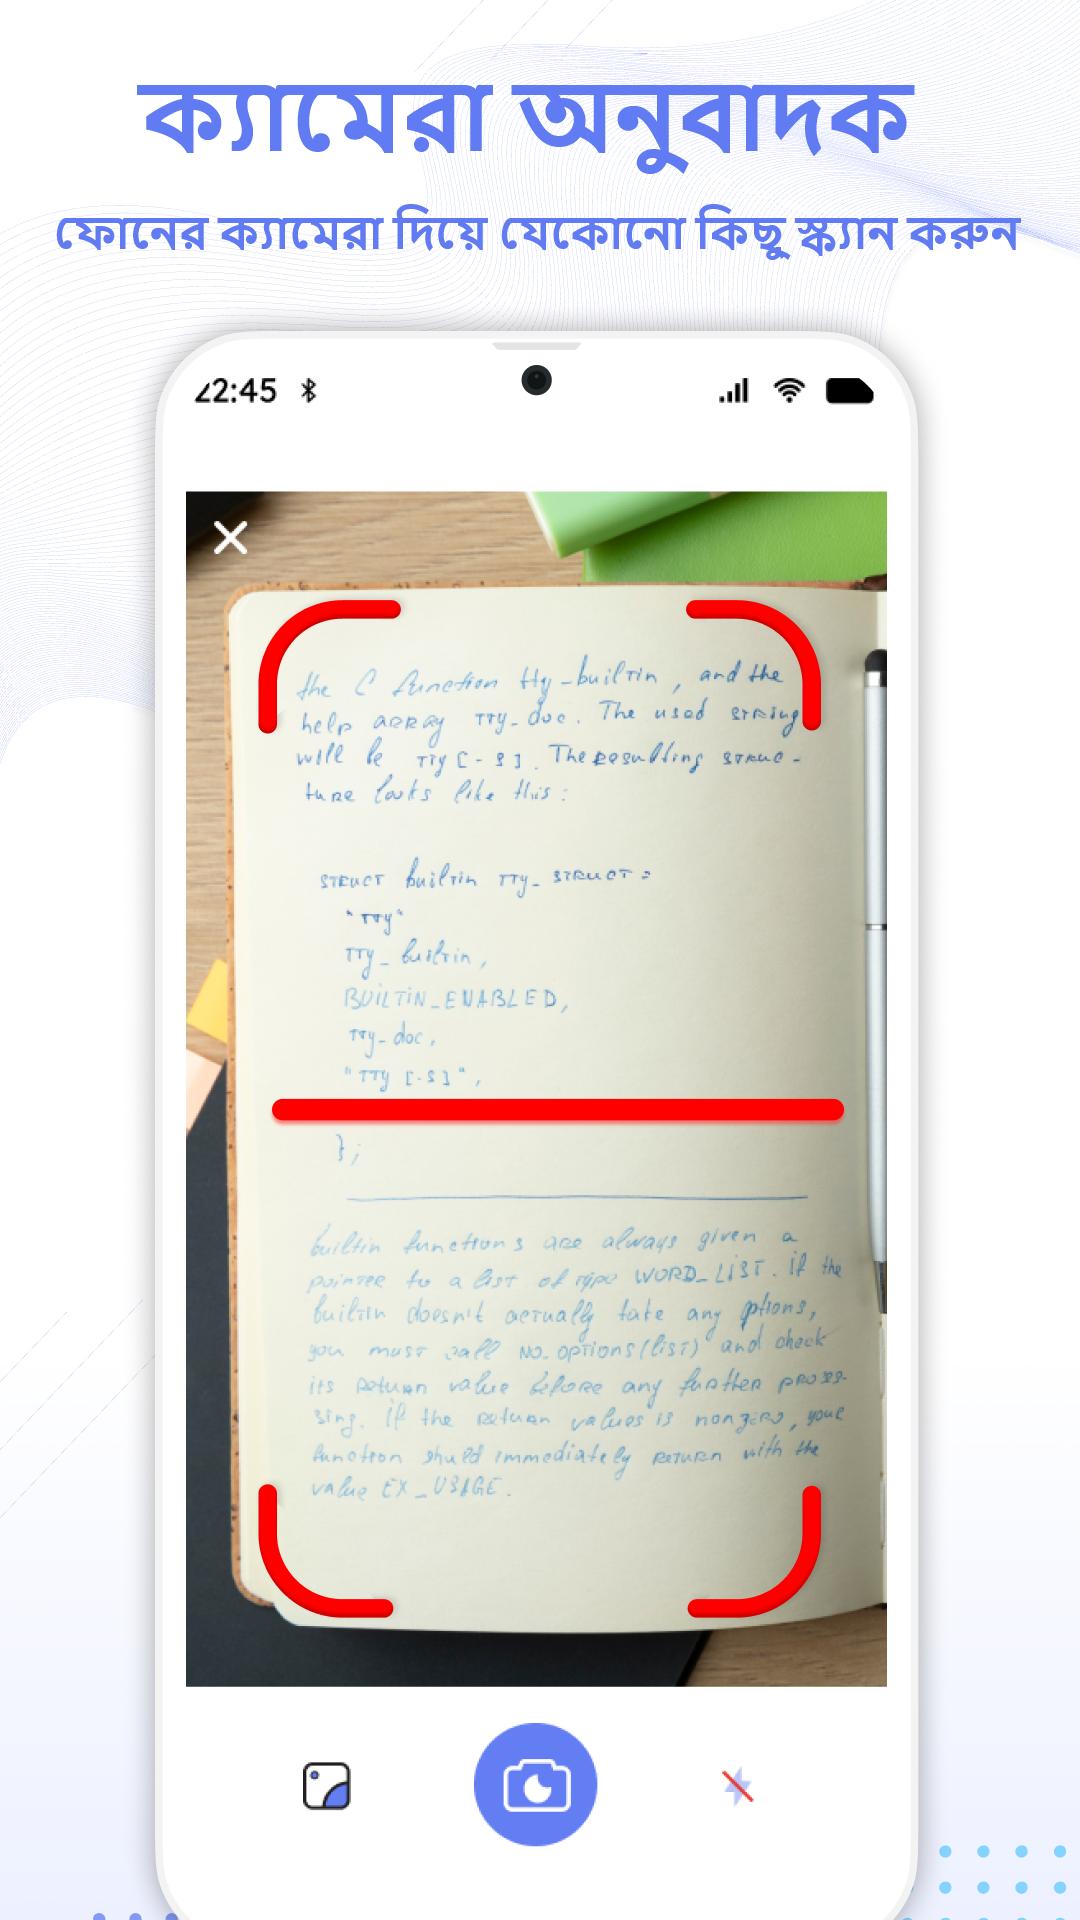 ক্যামেরা অনুবাদক
ফোনের ক্যামেরা দিয়ে যেকোনো কিছু স্ক্যান করুন
22:45
the C function tty_builtin, and the
help array tty_doc. The used string
will be tty [-s]. The resulting struc-
ture looks like this:
struct builtin tty_struct =
"tty"
tty_builtin,
BUILTIN_ENABLED,
tty_doc,
"tty [-s]",
};
builtin functions are always given a
pointer to a list of type WORD_LIST. If the
builtin doesn't actually take any options,
you must call no_options(list) and check
its return value before any further proces-
sing. If the return values is nonzero, your
function should immediately return with the
value EX_USAGE.